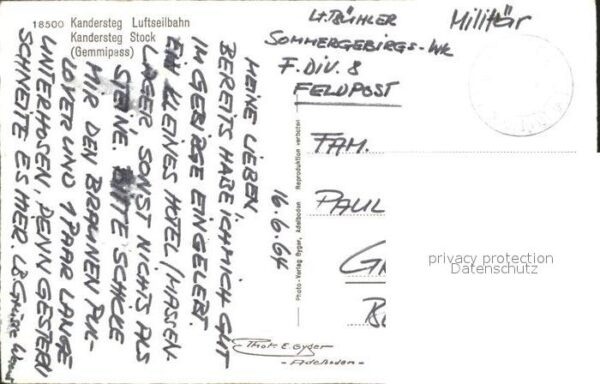 18500 Kandersteg Luftseilbahn
Kandersteg Stock
(Gemmipass)
Lt. BÜHLER
SOMMERGEBIRGS-WK
F. DIV. 8
FELDPOST
Militär
16.6.64
MEINE LIEBEN,
BEREITS HABE ICH MICH GUT
IM GEBIRGE EINGELEBT.
EIN KLEINES HOTEL (MASSEN-
LAGER SONST NICHTS ALS
STEINE. BITTE SCHICKE
MIR DEN BRAUNEN PUL-
LOVER UND 1 PAAR LANGE
UNTERHOSEN, DENN GESTERN
SCHNEITE ES HIER. LB. Grüsse
Photo-Verlag Gyger, Adelboden Reproduktion verboten
FAM.
PAUL
privacy protection
Datenschutz
Phot. E. Gyger
-Adelboden-